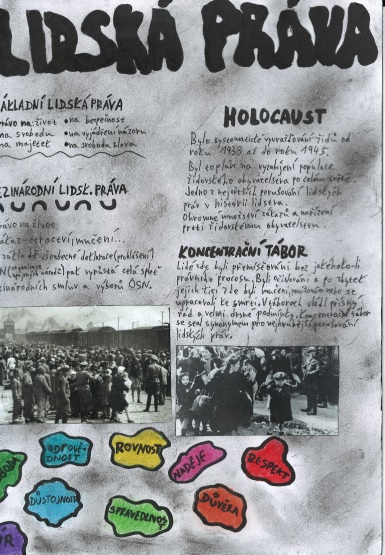 LIDSKÁ PRÁVA
ÁKLADNÍ LIDSKÁ PRÁVA
právo na:život •na bezpečnost
na svobodu •na vyjádření názoru
na majetek •na svobodu slova
EZINÁRODNÍ LIDSK. PRÁVA
právo na život
otroctví, mučení...
všeobecné deklarace (prohlášení)
pak vyplstá celá
zinárodních smluv a výborů OSN.
HOLOCAUST
Bylo systematické vyvražďování židů od
roku 1933 až do roku 1945.
Byl to plán na vyhubení populace
židovského obyvatelstva po celém světě.
Jedno z největších porušování lidských
práv v historii lidstva.
Ohromné množství zákazů a nařízení
proti židovskému obyvatelstvu.
KONCENTRAČNÍ TÁBOR
Lidé zde byli přemisťováni bez jakéhoko-li
právního procesu. Byli a po zbytek
jejich žití zde byli mučeni, nebo se
upracovat ke smrti. V táborech vládl přísný
řád a velmi podmínky. Koncentrační tábor
se stal synonymem pro nejhrubější porušování
lidských práv.
ODPOVĚ-
DNOST
ROVNOST
NADĚJE
RESPEKT
DŮSTOJNOST
SPRAVEDLNOST
DŮVĚRA
ÍR